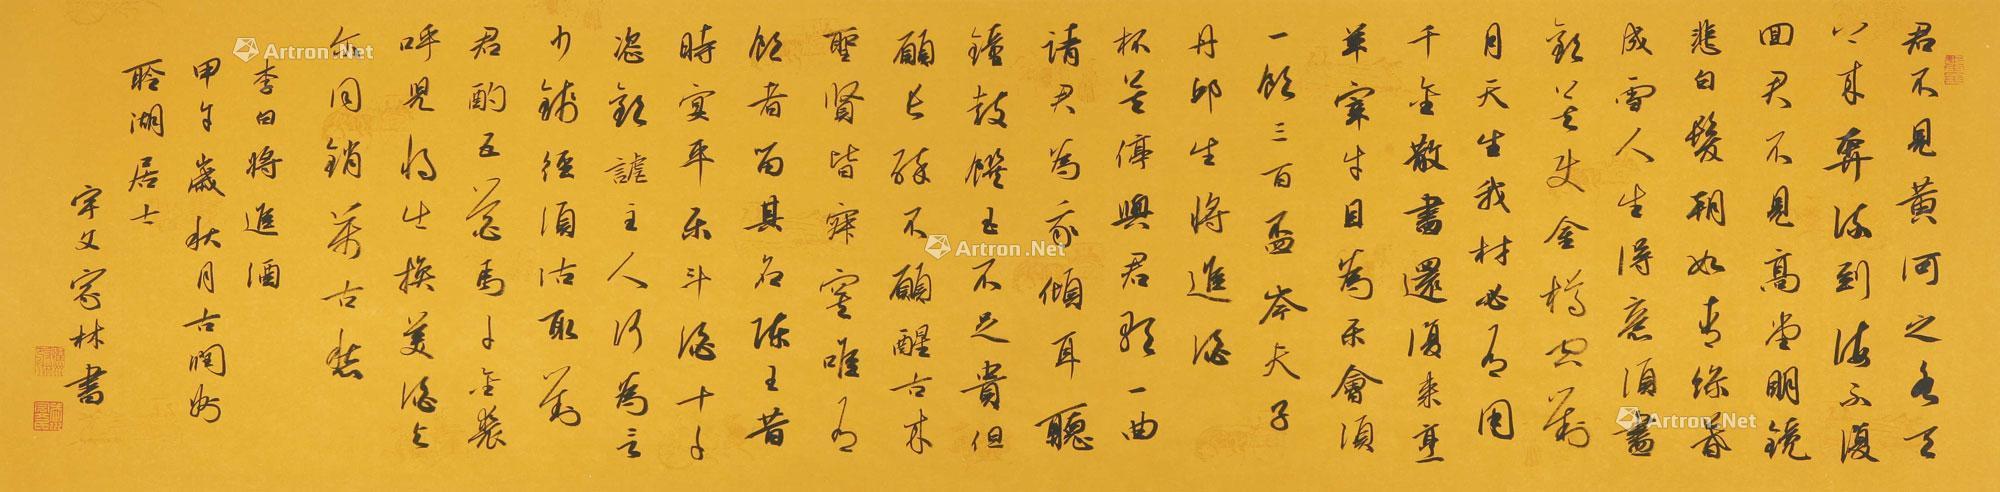 君不見黃河之水天
上來奔流到海不復
回君不見高堂明鏡
悲白髮朝如青絲暮
成雪人生得意須盡
歡莫使金樽空對
月天生我材必有用
千金散盡還復來烹
羊宰牛且為樂會須
一飲三百盃岑夫子
丹邱生將進酒
杯莫停與君歌一曲
請君為我傾耳聽
鐘鼓饌玉不足貴但
願長醉不願醒古來
聖賢皆寂寞唯有
飲者留其名陳王昔
時宴平樂斗酒十千
恣歡謔主人何為言
少錢徑須沽取對
君酌五花馬千金裘
呼兒將出換美酒與
爾同銷萬古愁
李白將進酒
甲午歲秋月古潤州
聆湖居士
宇文家林書
Artron.Net
Artron.Net
Artron.Net
Artron.Net
Artron.Net